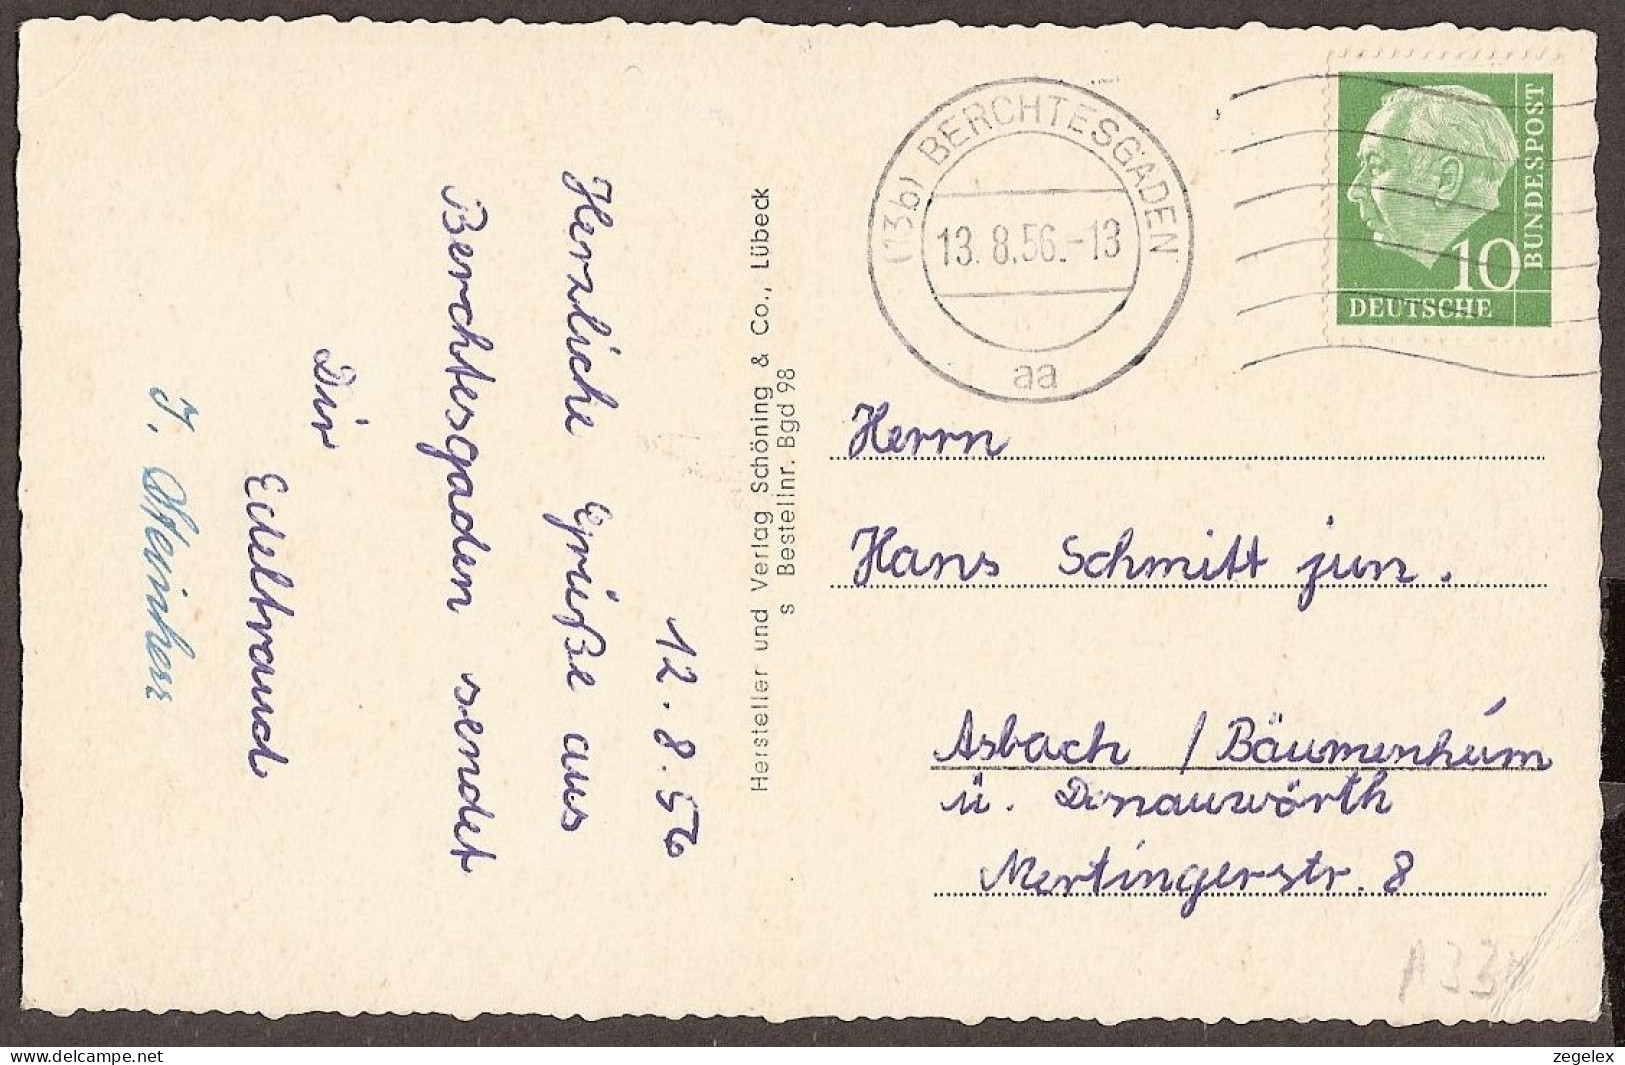 12.8.56
Herzliche Grüße aus
Berchtesgaden sendet
Dir
Edeltraud
J. Steinherr
Hersteller und Verlag Schöning & Co., Lübeck
s Bestellnr. Bgd 98
(13b) BERCHTESGADEN
13.8.56.-13
aa
BUNDESPOST
10
DEUTSCHE
Herrn
Hans Schmitt jun.
Asbach / Bäumenheim
ü. Donauwörth
Mertingerstr. 8
delcampe.net
zegelex